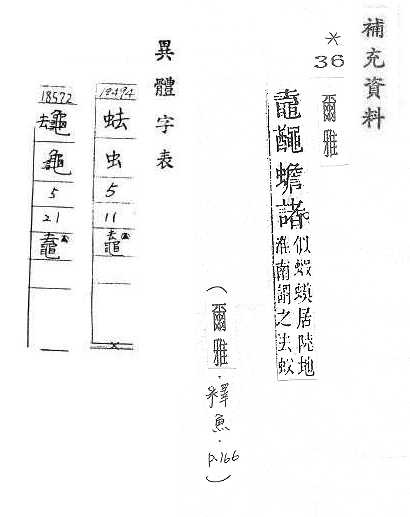 補充資料
*
36
爾雅
鼁𪓰蟾諸
似蝦蟆居陸地
淮南謂之去蚁
(爾雅·釋魚·p.166)
異體字表
12494
蚨
虫
5
11
鼁
18572
龜
5
21
鼁